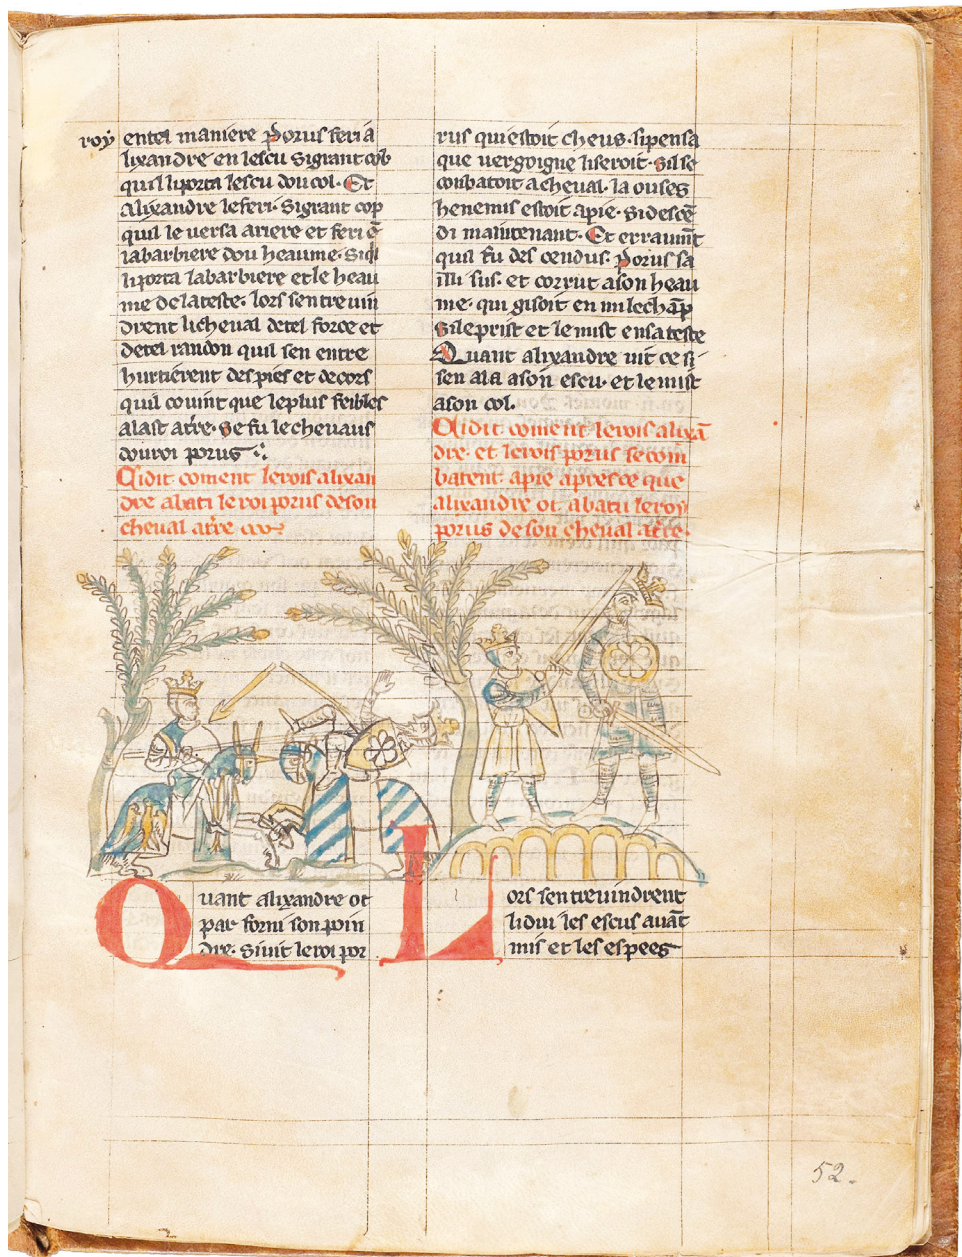 roy entel maniere porus feri a
lixandre en lescu si grant cob
quil li porta lescu dou col. Et
alixandre le feri si grant cop
quil le versa ariere et feri ē
la barbiere dou heaume. Si q̄l
li porta la barbiere et le heau
me de la teste. lors sen tre vin
drent li cheval de tel force et
de tel randon quil sen entre
hurtierent des pies et de cors
quil couint que le plus feibles
alast at̄re. Se fu le chevaus
dou roi porus
Cidit coment le rois alixan
dre abati le roi porus de son
cheval at̄re
Quant alixandre ot
par forni son poin
dre. Si vit le roi por
rus qui estoit cheus. si pensa
que vergoigne li seroit. Si se
conbatoit a cheval. la ou ses
henemis estoit a pie. Si descē
di maintenant. Et erraum̄t
quil fu des cendus. porus sa
illi sus. et corrut a son heau
me. qui gisoit en mi le chāp
Si le prist et le mist en sa teste
Quant alixandre vit ce si
sen ala a son escu. et le mist
a son col.
Cidit coment le rois alixā
dre. et le rois porus se com
batent. a pie apres ce que
alixandre ot. abatu le roy
porus de son cheval. at̄re.
Lors sen trevindrent
li dui les escus auāt
mis et les espees
52.